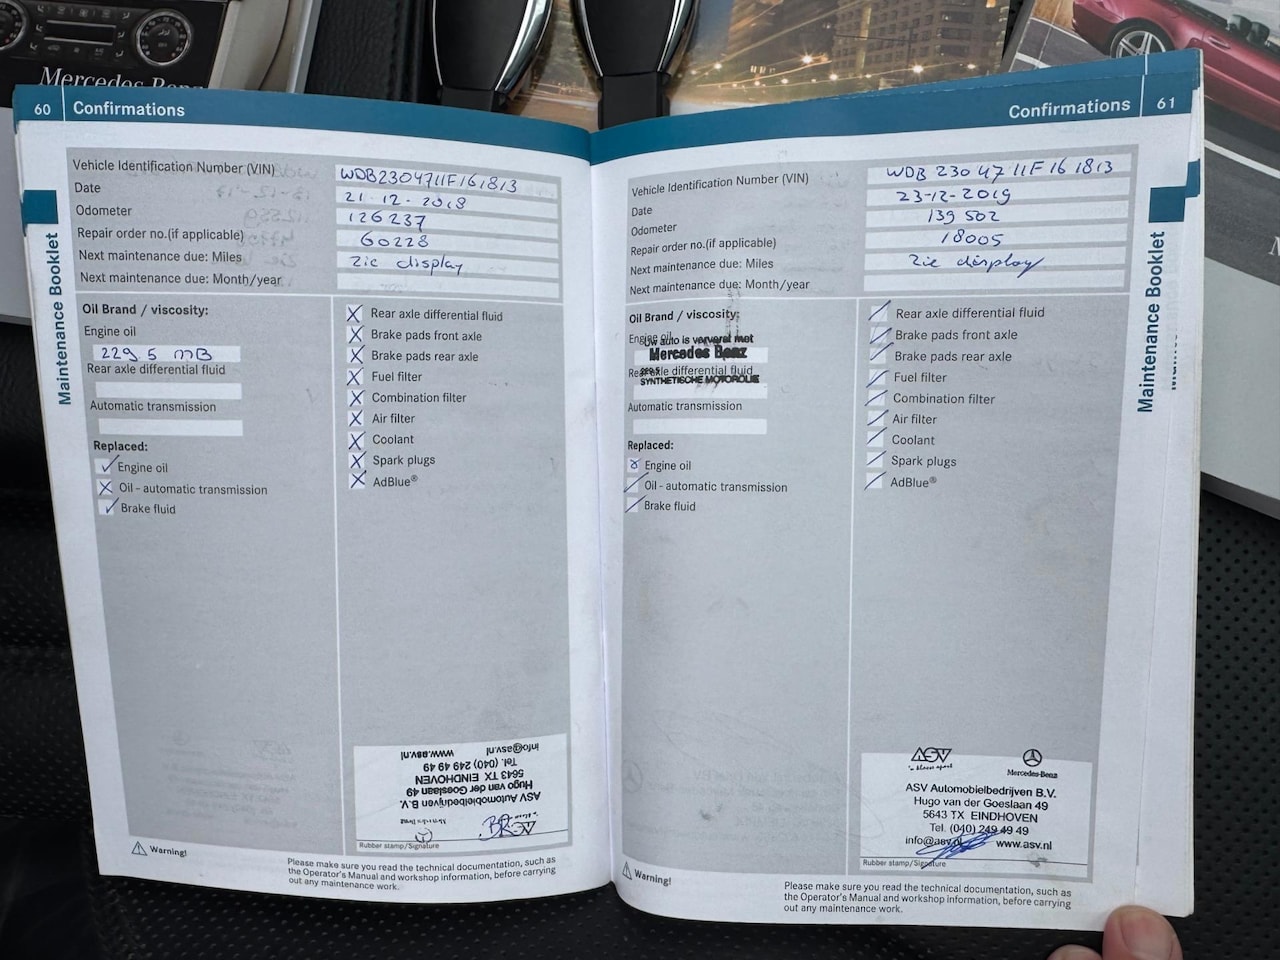 Mercedes-Benz
60 Confirmations
Maintenance Booklet
Vehicle Identification Number (VIN) WDB2304711F161813
Date 21-12-2018
Odometer 126237
Repair order no.(if applicable) 60228
Next maintenance due: Miles Zie display
Next maintenance due: Month/year
Oil Brand / viscosity:
Engine oil
229 5 MB
Rear axle differential fluid
Automatic transmission
Replaced:
Engine oil
Oil - automatic transmission
Brake fluid
Rear axle differential fluid
Brake pads front axle
Brake pads rear axle
Fuel filter
Combination filter
Air filter
Coolant
Spark plugs
AdBlue®
ASV
ASV Automobielbedrijven B.V.
Hugo van der Goeslaan 49
5643 TX EINDHOVEN
Tel. (040) 249 49 49
info@asv.nl www.asv.nl
Rubber stamp/Signature
Warning!
Please make sure you read the technical documentation, such as
the Operator's Manual and workshop information, before carrying
out any maintenance work.
Confirmations 61
Maintenance Booklet
Vehicle Identification Number (VIN) WDB 230 47 11F 16 1813
Date 23-12-2019
Odometer 139 502
Repair order no.(if applicable) 18005
Next maintenance due: Miles Zie display
Next maintenance due: Month/year
Oil Brand / viscosity:
Engine oil
Uw auto is ververst met
Mercedes Benz
Rear axle differential fluid
SYNTHETISCHE MOTOROLIE
Automatic transmission
Replaced:
Engine oil
Oil - automatic transmission
Brake fluid
Rear axle differential fluid
Brake pads front axle
Brake pads rear axle
Fuel filter
Combination filter
Air filter
Coolant
Spark plugs
AdBlue®
ASV
Mercedes-Benz
ASV Automobielbedrijven B.V.
Hugo van der Goeslaan 49
5643 TX EINDHOVEN
Tel. (040) 249 49 49
info@asv.nl www.asv.nl
Rubber stamp/Signature
Warning!
Please make sure you read the technical documentation, such as
the Operator's Manual and workshop information, before carrying
out any maintenance work.